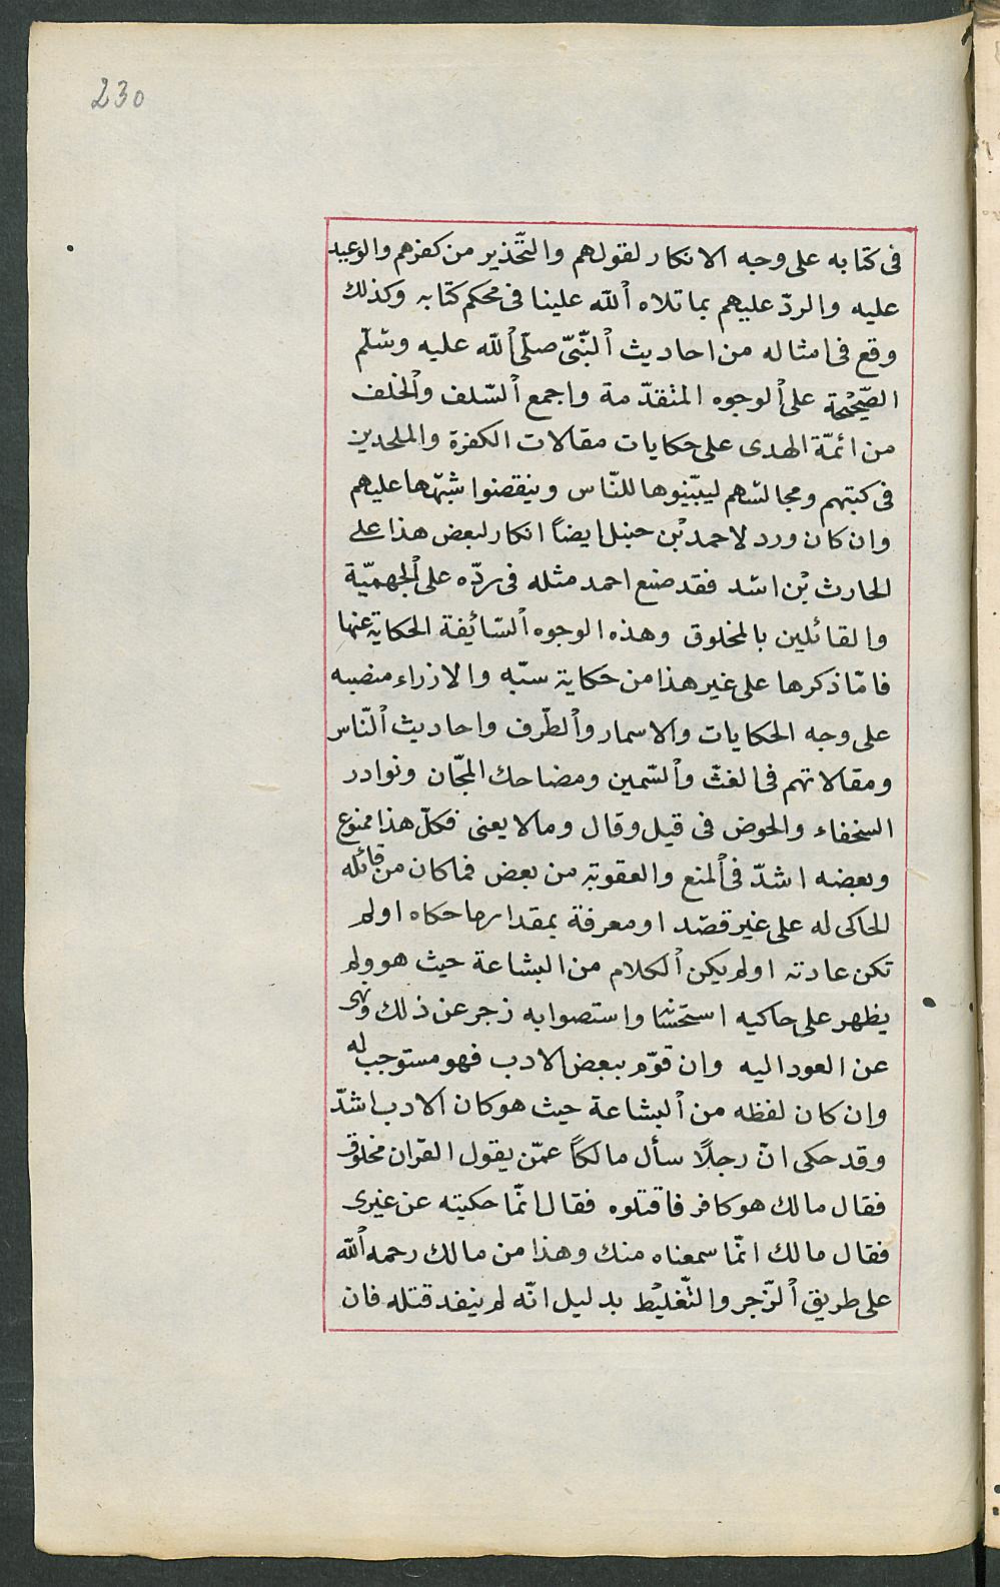 230
فى كتابه على وجه الانكار لقولهم والتّحذير من كفرهم والوعيد
عليه والردّ عليهم بما تلاه ٱللّه علينا فى محكم كتابه وكذلك
وقع فى امثاله من احاديث ٱلنّبىّ صلّى ٱللّه عليه وسلّم
الصّحيحة على ٱلوجوه المتقدّمة واجمع ٱلسّلف وٱلخلف
من ائمّة الهدى على حكايات مقالات الكفرة والملحدين
فى كتبهم ومجالسهم ليبّينوها للنّاس وينقضوا شبّهها عليهم
وان كان ورد لاحمد بْن حنبل ايضاً انكار لبعض هذا على
الحارث بْن اسد فقد صنع احمد مثله فى ردّه على ٱلجهميّة
والقائلين بالمخلوق وهذه الوجوه ٱلسّائغة الحكاية عنها
فامّا ذكرها على غير هذا من حكاية سبّه والازراء منصبه
على وجه الحكايات والاسمار وٱلطّرف واحاديث ٱلنّاس
ومقالاتهم فى الغثّ وٱلسّمين ومضاحك المجّان ونوادر
السخفاء والخوض فى قيل وقال ومالا يعنى فكلّ هذا ممنوع
وبعضه اشدّ فى ٱلمنع والعقوبة من بعض فما كان من قائله
الحاكى له على غير قصْد او معرفة بمقدار ما حكاه او لم
تكن عادته او لم يكن ٱلكلام من البشاعة حيث هو ولم
يظهر على حاكيه استحسْنا واستصوابه زجر عن ذلك ونهى
عن العود اليه وان قوّم ببعض الادب فهو مستوجب له
وان كان لفظه من ٱلبشاعة حيث هو كان الادب اشدّ
وقد حكى انّ رجلًا سأل مالكاً عمّن يقول القرٰان مخلوق
فقال مالك هو كافر فاقتلوه فقال انّما حكيته عن غيرى
فقال مالك انّما سمعناه منك وهذا من مالك رحمه ٱللّه
على طريق ٱلزّجر والتّغليْط بدليل انّه لم ينفد قتله فان